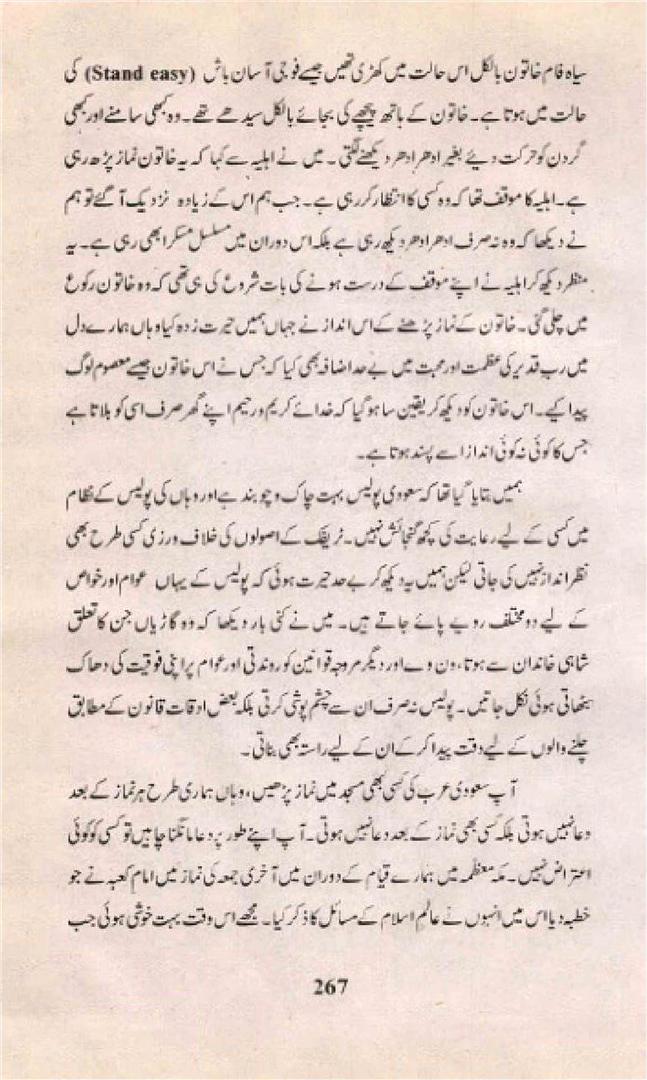 سیاہ فام خاتون بالکل اس حالت میں کھڑی تھیں جیسے فوجی آسان باش (Stand easy) کی
حالت میں ہوتا ہے۔ خاتون کے ہاتھ پیچھے کی بجائے بالکل سیدھے تھے۔ وہ کبھی سامنے اور کبھی
گردن کو حرکت دیئے بغیر ادھر ادھر دیکھنے لگتی۔ میں نے اہلیہ سے کہا کہ یہ خاتون نماز پڑھ رہی
ہے۔ اہلیہ کا موقف تھا کہ وہ کسی کا انتظار کر رہی ہے۔ جب ہم اس کے زیادہ نزدیک آ گئے تو ہم
نے دیکھا کہ وہ نہ صرف ادھر ادھر دیکھ رہی ہے بلکہ اس دوران میں مسلسل مسکرا بھی رہی ہے۔ یہ
منظر دیکھ کر اہلیہ نے اپنے موقف کے درست ہونے کی بات شروع کی ہی تھی کہ وہ خاتون رکوع
میں چلی گئی۔ خاتون کے نماز پڑھنے کے اس انداز نے جہاں ہمیں حیرت زدہ کیا وہاں ہمارے دل
میں رب قدیر کی عظمت اور محبت میں بے حد اضافہ بھی کیا کہ جس نے اس خاتون جیسے معصوم لوگ
پیدا کیے۔ اس خاتون کو دیکھ کر یقین سا ہو گیا کہ خدائے کریم و رحیم اپنے گھر صرف اسی کو بلاتا ہے
جس کا کوئی نہ کوئی انداز اسے پسند ہوتا ہے۔
ہمیں بتایا گیا تھا کہ سعودی پولیس بہت چاک و چوبند ہے اور وہاں کی پولیس کے نظام
میں کسی کے لیے رعایت کی کچھ گنجائش نہیں۔ ٹریفک کے اصولوں کی خلاف ورزی کسی طرح بھی
نظر انداز نہیں کی جاتی لیکن ہمیں یہ دیکھ کر بے حد حیرت ہوئی کہ پولیس کے یہاں عوام اور خواص
کے لیے دو مختلف رویے پائے جاتے ہیں۔ میں نے کئی بار دیکھا کہ وہ گاڑیاں جن کا تعلق
شاہی خاندان سے ہوتا، ون وے اور دیگر مروجہ قوانین کو روندتی اور عوام پر اپنی فوقیت کی دھاک
بٹھاتی ہوئی نکل جاتیں۔ پولیس نہ صرف ان سے چشم پوشی کرتی بلکہ بعض اوقات قانون کے مطابق
چلنے والوں کے لیے دقت پیدا کر کے ان کے لیے راستہ بھی بناتی۔
آپ سعودی عرب کی کسی بھی مسجد میں نماز پڑھیں، وہاں ہماری طرح ہر نماز کے بعد
دعا نہیں ہوتی بلکہ کسی بھی نماز کے بعد دعا نہیں ہوتی۔ آپ اپنے طور پر دعا مانگنا چاہیں تو کسی کو کوئی
اعتراض نہیں۔ مکہ معظمہ میں ہمارے قیام کے دوران میں آخری جمعہ کی نماز میں امام کعبہ نے جو
خطبہ دیا اس میں انہوں نے عالم اسلام کے مسائل کا ذکر کیا۔ مجھے اس وقت بہت خوشی ہوئی جب
267